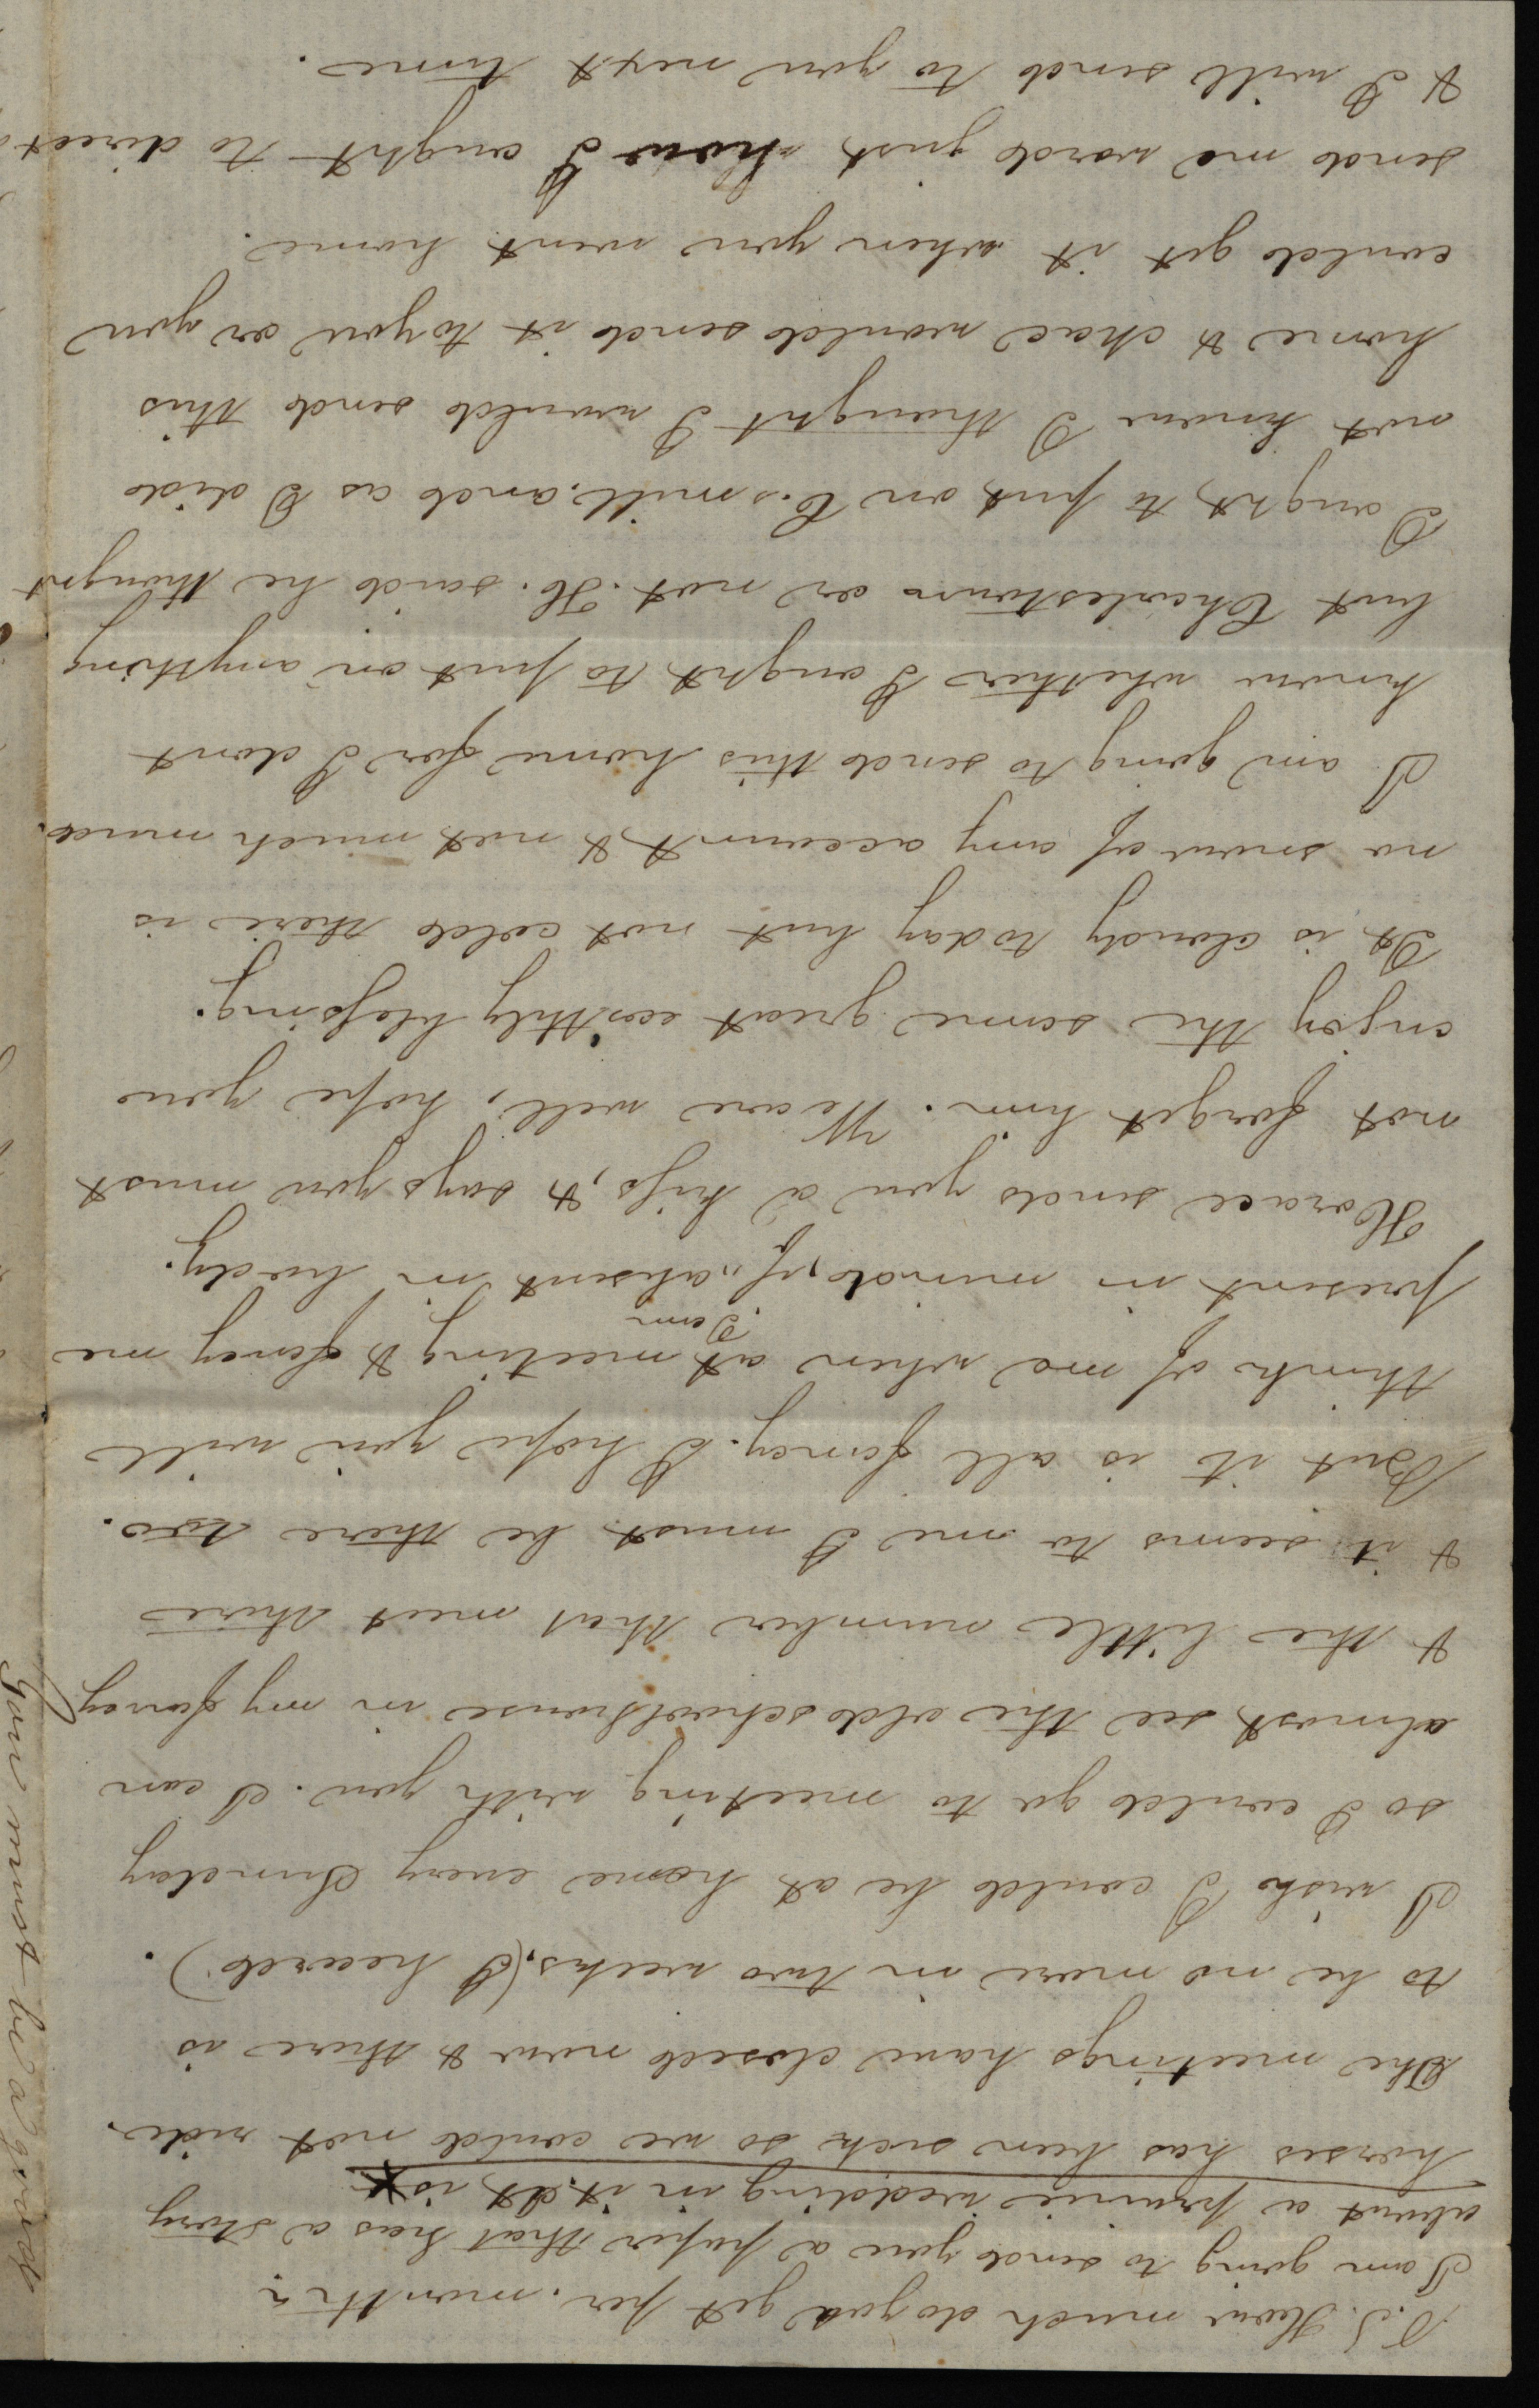 P.S. How much do you get per. month?
I am going to send you a paper that has a story
about a prairie wedding in it. It is *
horses has been sick so we could not ride.
The meetings have closed now & there is
to be no more in two weeks, (I heard).
I wish I could be at home every Sunday
so I could go to meeting with you. I can
almost see the old schoolhouse in my fancy
& the little number that meet there
& it seems to me I must be there too.
But it is all fancy. I hope you will
think of me when at meeting & fancy me
I am
present in mind, if, absent in body.
Horace sends you a kiss, & says you must
not forget him. We are well, hope you
enjoy the same great earthly blessing.
It is cloudy today but not cold there is
no snow of any account, & not much mud.
I am going to send this home for I dont
know whether I ought to put on anything
but Charlestown or not. H. said he thought
I ought to put on C. mill. and as I did
not know I thought I would send this
home & chae would send it to you or you
could get it when you went home.
send me word just how I ought to direct
& I will send to you next time.
You must be a good